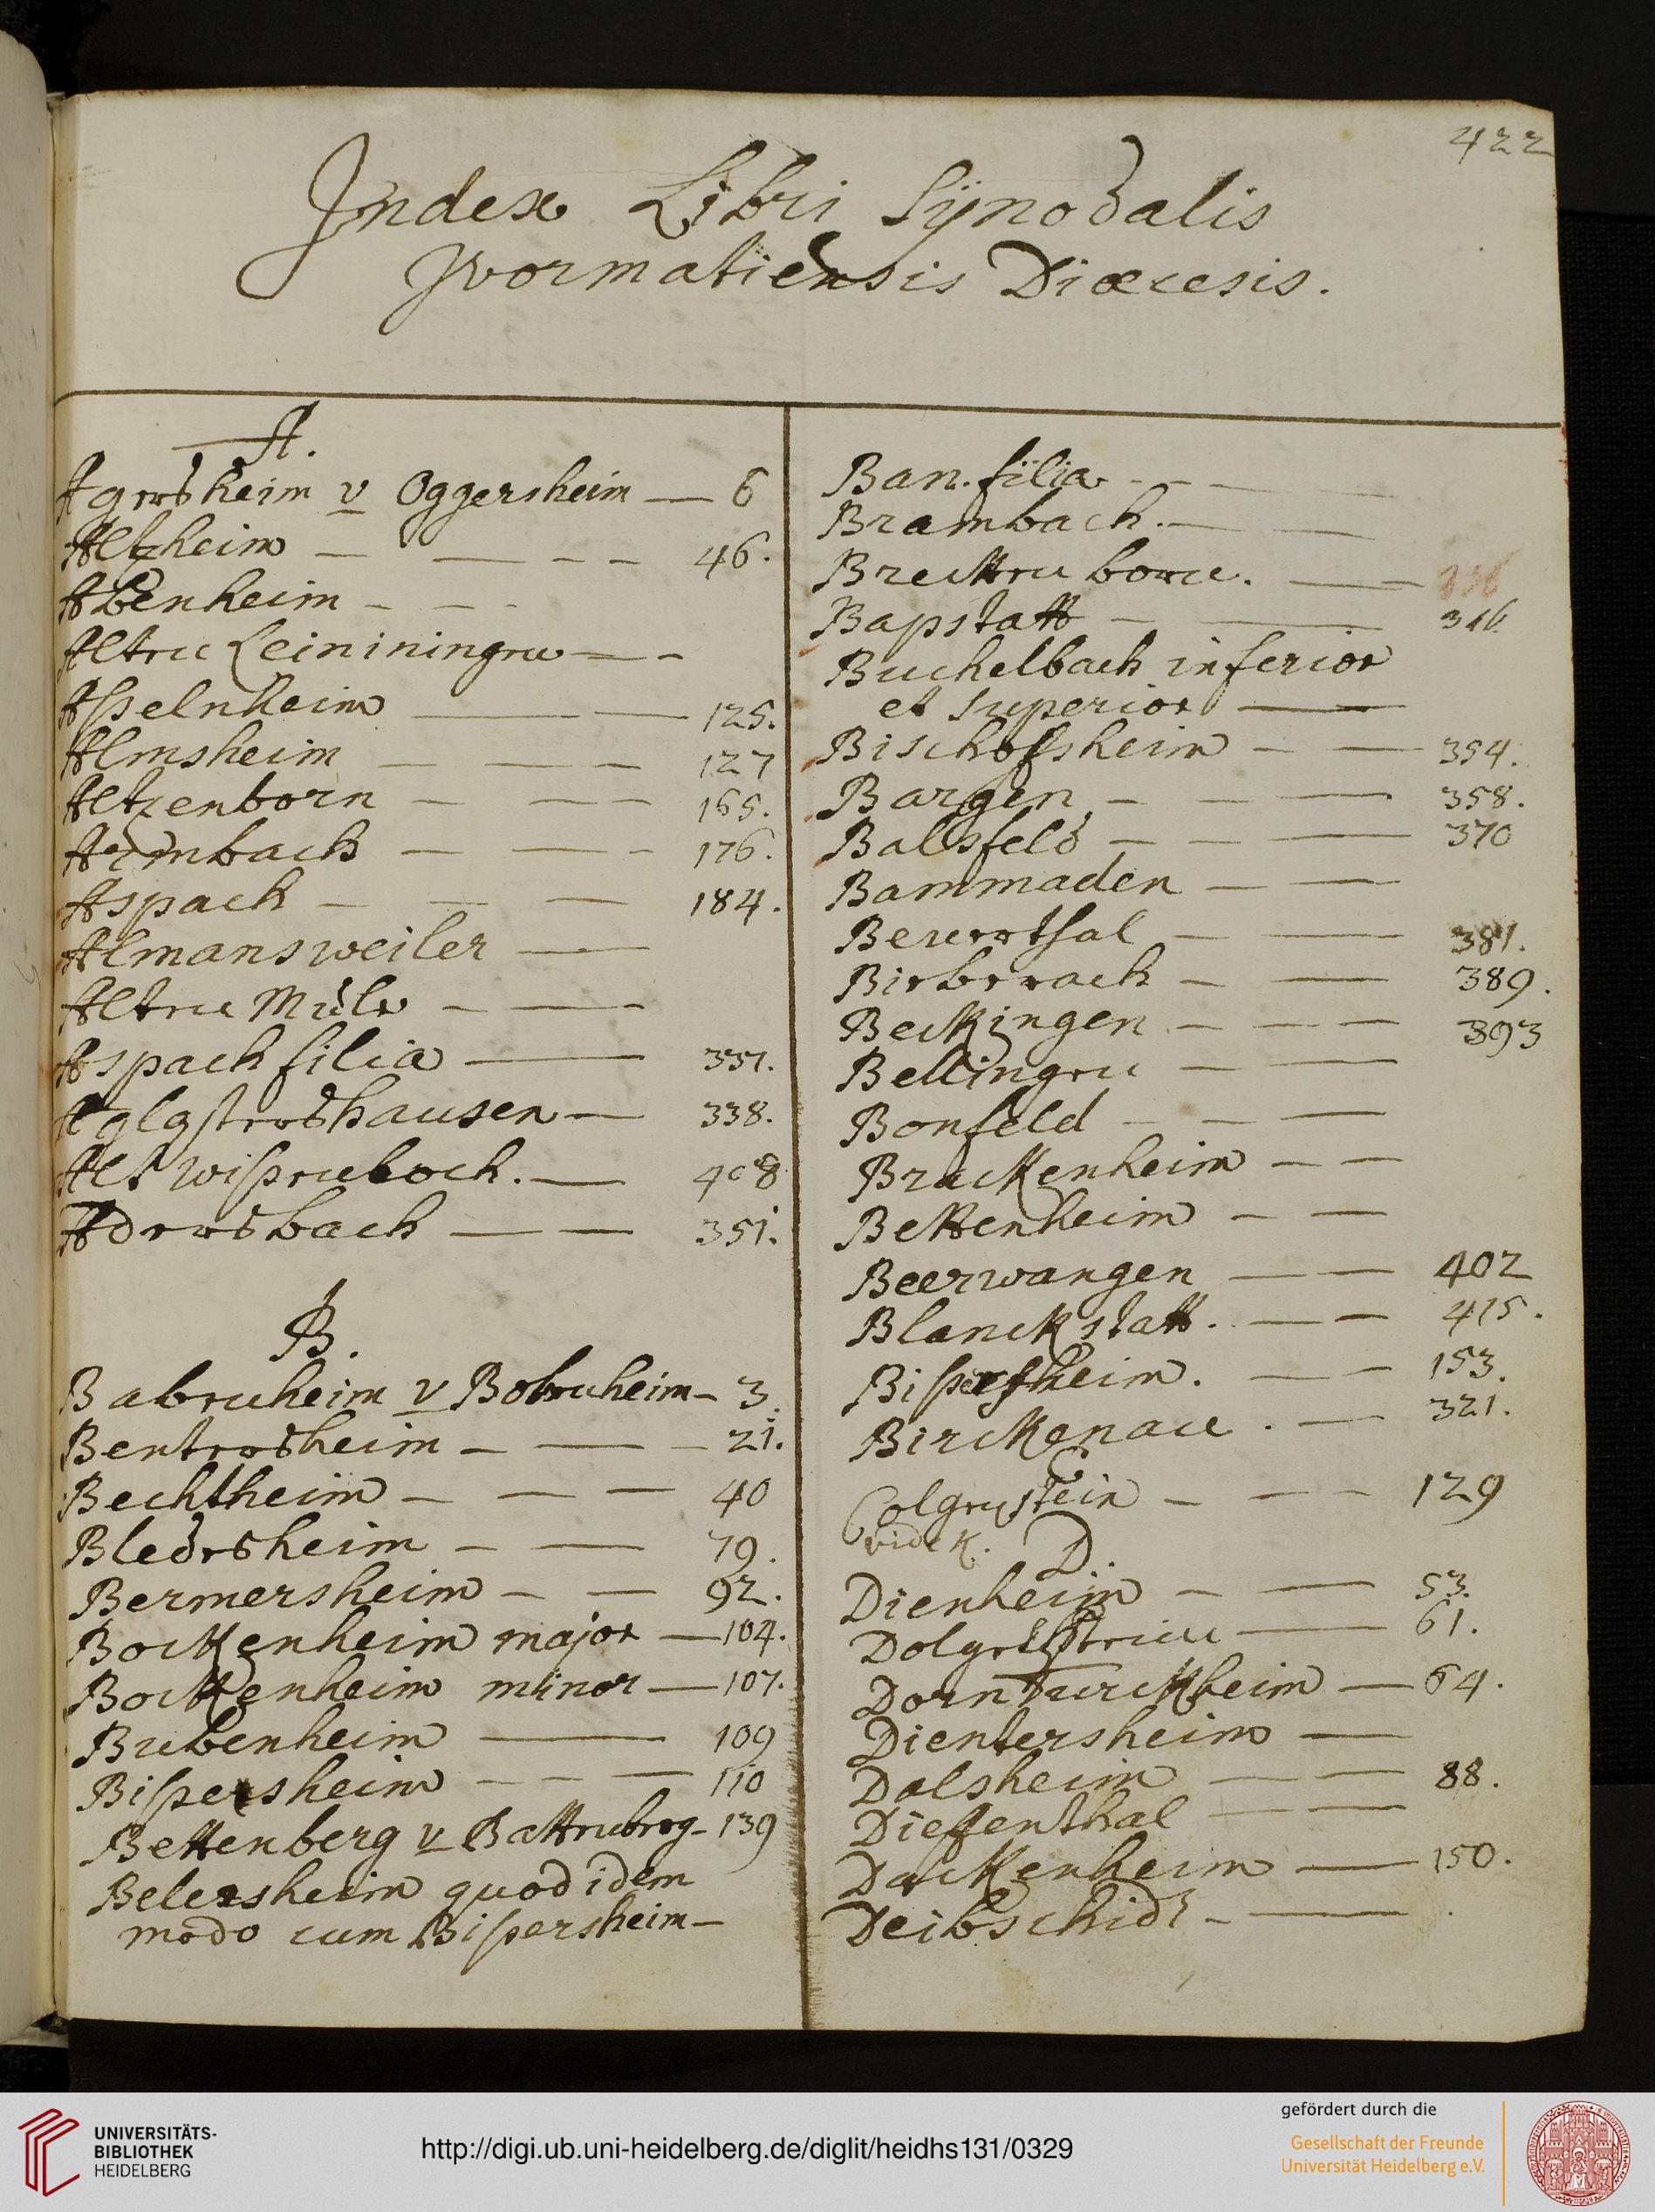 422
Index Libri Sÿnodalis
Wormatiensis Diœcesis.
A.
Agersheim v Oggersheim — 6
Altzheim — — — — 46.
Abenheim — — —
Alten Leininingen — —
Asselnheim — — 125.
Almsheim — — — 127
Altzenborn — — — 165.
Armbach — — — 176.
Aspach — — — 184.
Almansweiler — —
Alten Müler — — —
Aspach filia — 337.
Aglgsterhausen — 338.
Alt Wisenloch. — 408
Adersbach — — 351.
B.
Babenheim v Bobenheim — 3.
Bentersheim — — — 21.
Bechtheim — — — 40
Bledesheim — — 79.
Bermersheim — — 92.
Bockenheim major — 104.
Bockenheim minor — 107.
Bubenheim — 109
Bissersheim — — — 110
Bettenberg v Battenberg — 139
Belersheim quod idem
modo cum Bissersheim —
Ban. filia — — —
Brambach. — —
Breittenborn. — —
Bapstatt — — 316
Buchelbach inferior
et superior — —
Bischofsheim — — 354.
Bargen — — — 358.
Balsfeld — — — 370
Bammaden — —
Beuerthal — — 381.
Bieberach — — 389.
Beckingen — — — 393
Bellingen — —
Bonfeld — — —
Brackenheim — —
Bettenheim — —
Beerwangen — — 402
Blanckstatt. — — 415.
Bissersheim. — — 153.
Birckenau. — 321.
C
Colgenstein — — — 129
vide K.
D.
Dienheim — — 53.
Dolgesheim — 61.
Dorn Durckheim — 64.
Dientersheim —
Dalsheim — — 88.
Dieffenthal — —
Dackenheim — 150.
Deibschidt — —
UNIVERSITÄTS-
BIBLIOTHEK
HEIDELBERG
http://digi.ub.uni-heidelberg.de/diglit/heidhs131/0329
gefördert durch die
Gesellschaft der Freunde
Universität Heidelberg e.V.